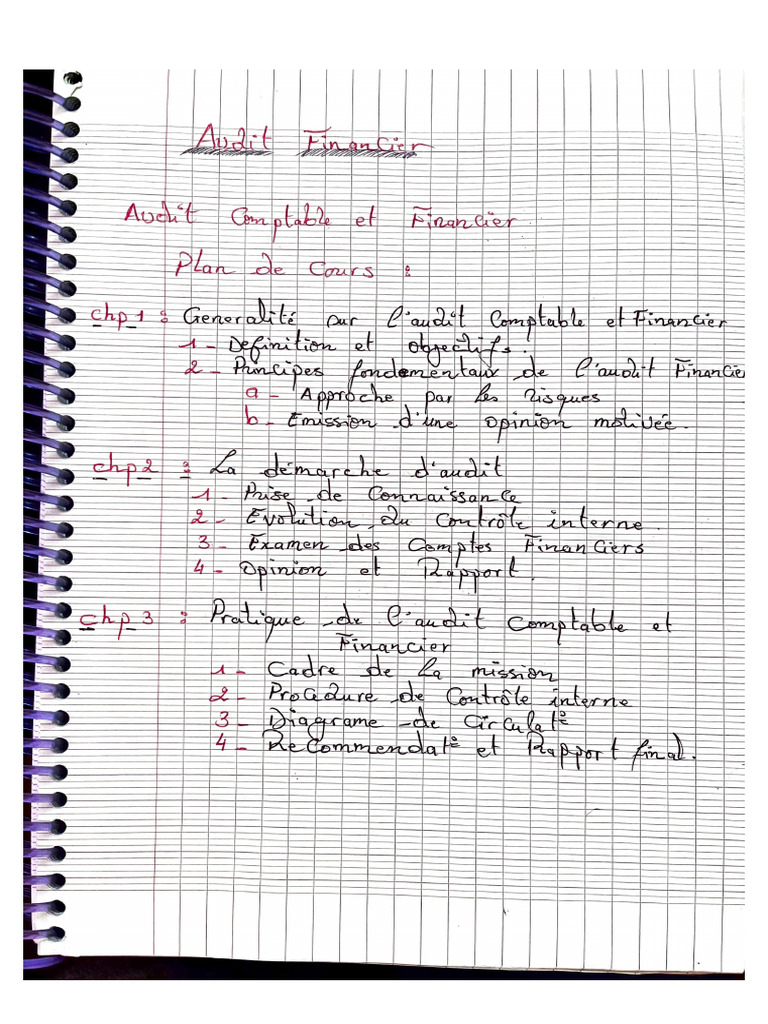 Audit Financier
Audit Comptable et Financier
Plan de Cours :
chp1 : Generalité sur l'audit Comptable et Financier
1 - Definition et objectifs.
2 - Principes fondementaux de l'audit Financier
a - Approche par les risques
b - Emission d'une opinion motivée.
chp2 : La démarche d'audit
1 - Prise de Connaissance
2 - Evolution du Contrôle interne.
3 - Examen des Comptes Financiers
4 - Opinion et Rapport.
chp3 : Pratique de l'audit Comptable et
Financier
1 - Cadre de la mission
2 - Procédure de Contrôle interne
3 - Diagrame de Circulat°
4 - Recommendat° et Rapport final.